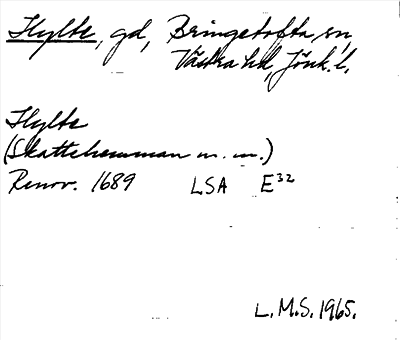 Hylte, gd, Bringetofta sn,
Västra hd, Jönk. l.
Hylte
(Skattehemman m. m.)
Renov. 1689 LSA E³²
L.M.S. 1965.